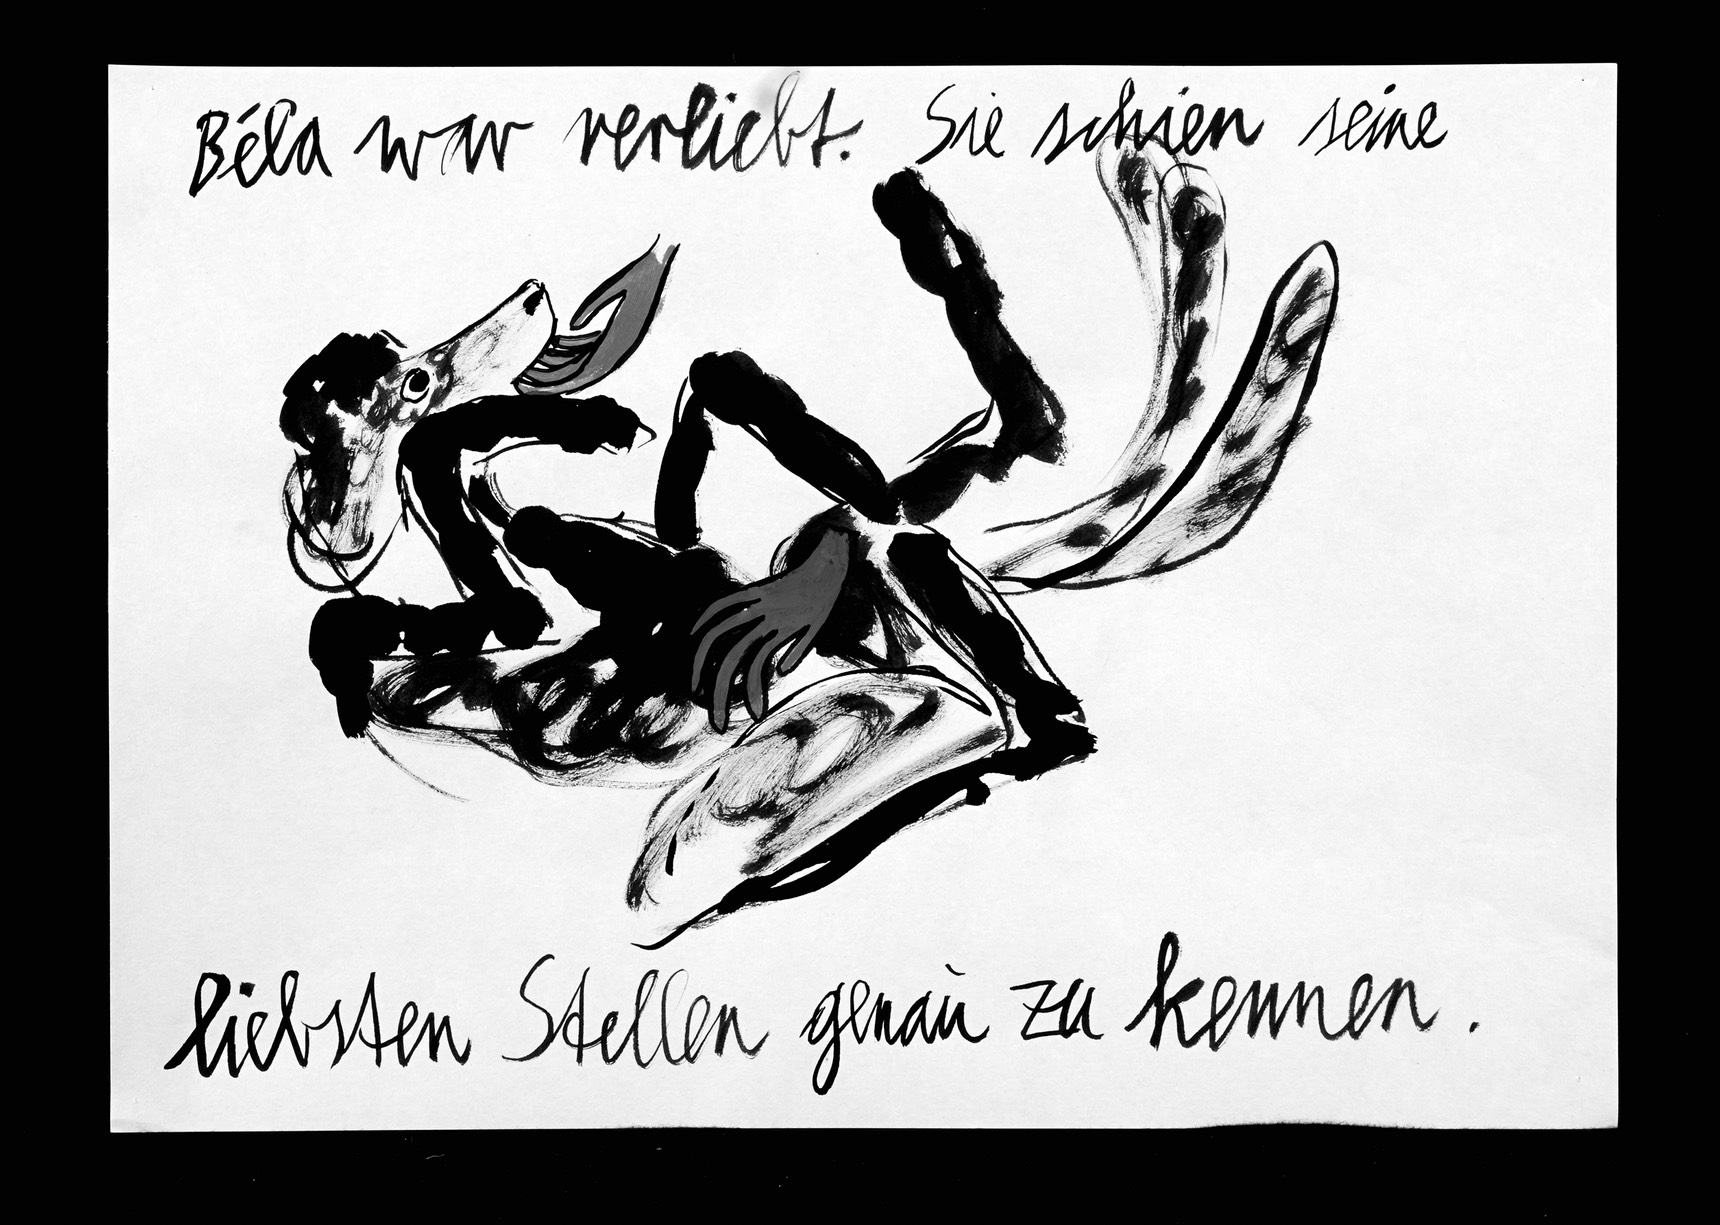 Béla war verliebt. Sie schien seine
liebsten Stellen genau zu kennen.